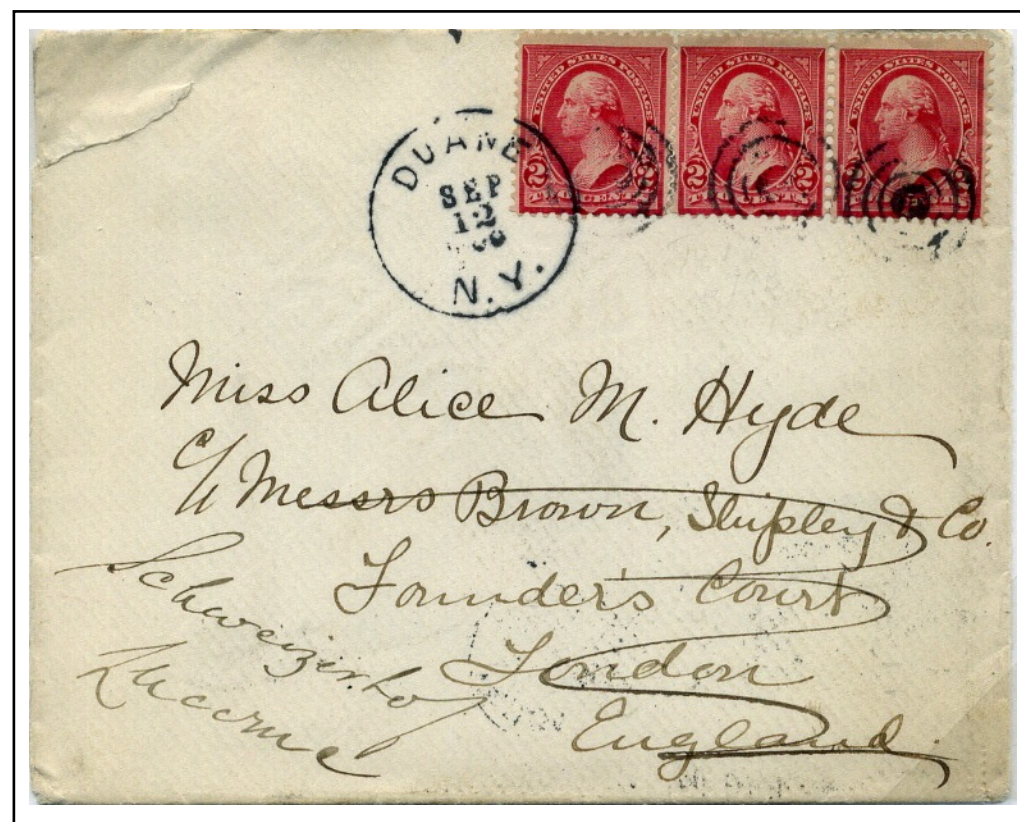 UNITED STATES POSTAGE UNITED STATES POSTAGE UNITED STATES POSTAGE
2 2 2 2 2
TWO CENTS
DUANE
SEP
12
N.Y.
Miss Alice M. Hyde
c/o Messrs Brown, Shipley & Co.
Founder's Court
London
England
Schweizerhof
Lucerne